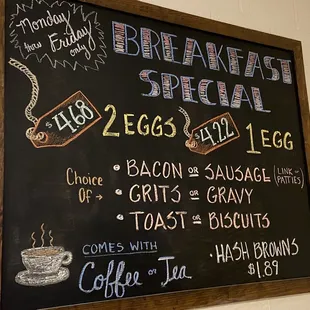 Monday
thru Friday
only
BREAKFAST
SPECIAL
$4.68 2 EGGS $4.22 1 EGG
Choice
Of →
• BACON OR SAUSAGE (LINK OR PATTIES)
• GRITS OR GRAVY
• TOAST OR BISCUITS
COMES WITH
Coffee or Tea
• HASH BROWNS
$1.89